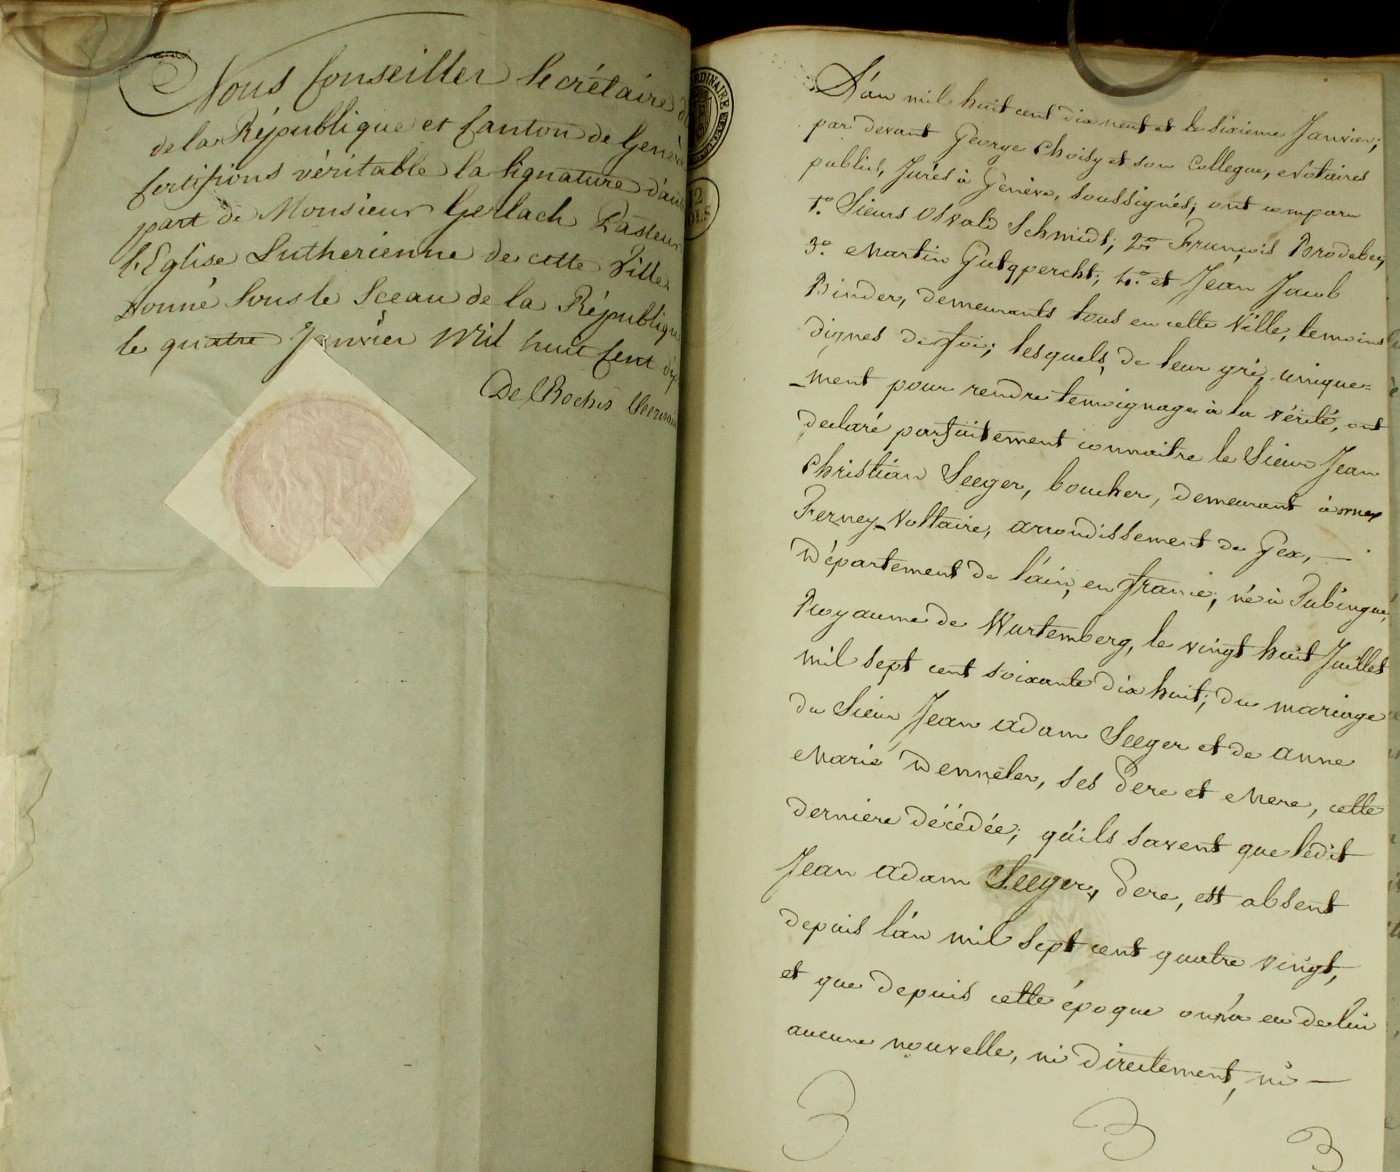 Nous Conseiller Secrétaire d
de la République et Canton de Genève
Certifions véritable la Signature d'autre
part de Monsieur Gerlach Pasteur
l'Eglise Lutherienne de cette Ville
Donné sous le Sceau de la République
le quatre Janvier Mil huit Cent dix
De Roches
ORDINAIRE
L'an mil huit cent dix neuf et le sixieme Janvier;
par devant George Choisy et son Collegue, Notaires
publics, Jurés à Genève, soussignés; ont comparu
1.º Sieurs Osvald Schmidt; 2.º François Brodebey
3.º Martin Gutqpercht; 4.º et Jean Jacob
Binder, demeurants tous en cette Ville, temoins
dignes de foi; lesquels, de leur gré, unique=
-ment pour rendre temoignage à la vérité, ont
declaré parfaitement connaitre le Sieur Jean
Christian Seeger, boucher, demeurant à
Ferney-Voltaire, arrondissement de Gex, —
Département de l'ain, en france, né à Tubingue,
Royaume de Wurtemberg, le vingt huit Juillet
mil sept cent soixante dix huit; du mariage
du Sieur Jean adam Seeger et de anne
Marie Denneler, ses Pere et Mere, cette
derniere décédée; qu'ils savent que ledit
Jean adam Seeger, Pere, est absent
depuis l'an mil sept cent quatre vingt,
et que depuis cette époque on n'a eu de lui
aucune nouvelle, ni directement, ni —